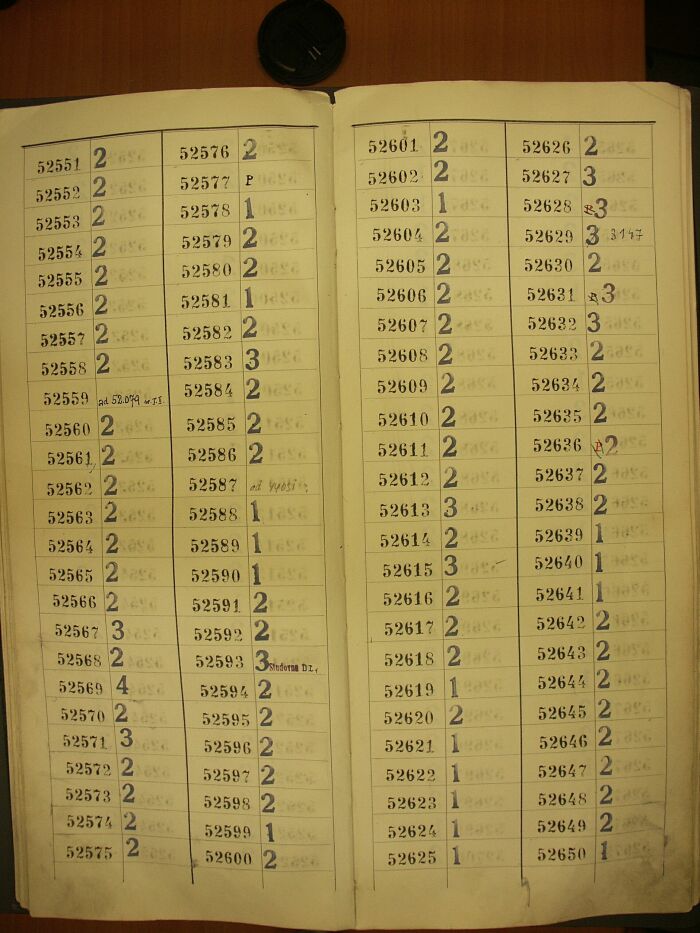 52551 2
52552 2
52553 2
52554 2
52555 2
52556 2
52557 2
52558 2
52559 ad 58.079
52560 2
52561 2
52562 2
52563 2
52564 2
52565 2
52566 2
52567 3
52568 2
52569 4
52570 2
52571 3
52572 2
52573 2
52574 2
52575 2
52576 2
52577 P
52578 1
52579 2
52580 2
52581 1
52582 2
52583 3
52584 2
52585 2
52586 2
52587 ad
52588 1
52589 1
52590 1
52591 2
52592 2
52593 3 Studovna
52594 2
52595 2
52596 2
52597 2
52598 2
52599 1
52600 2
52601 2
52602 2
52603 1
52604 2
52605 2
52606 2
52607 2
52608 2
52609 2
52610 2
52611 2
52612 2
52613 3
52614 2
52615 3
52616 2
52617 2
52618 2
52619 1
52620 2
52621 1
52622 1
52623 1
52624 1
52625 1
52626 2
52627 3
52628 P 3
52629 3 3147
52630 2
52631 P 3
52632 3
52633 2
52634 2
52635 2
52636 P 2
52637 2
52638 2
52639 1
52640 1
52641 1
52642 2
52643 2
52644 2
52645 2
52646 2
52647 2
52648 2
52649 2
52650 1